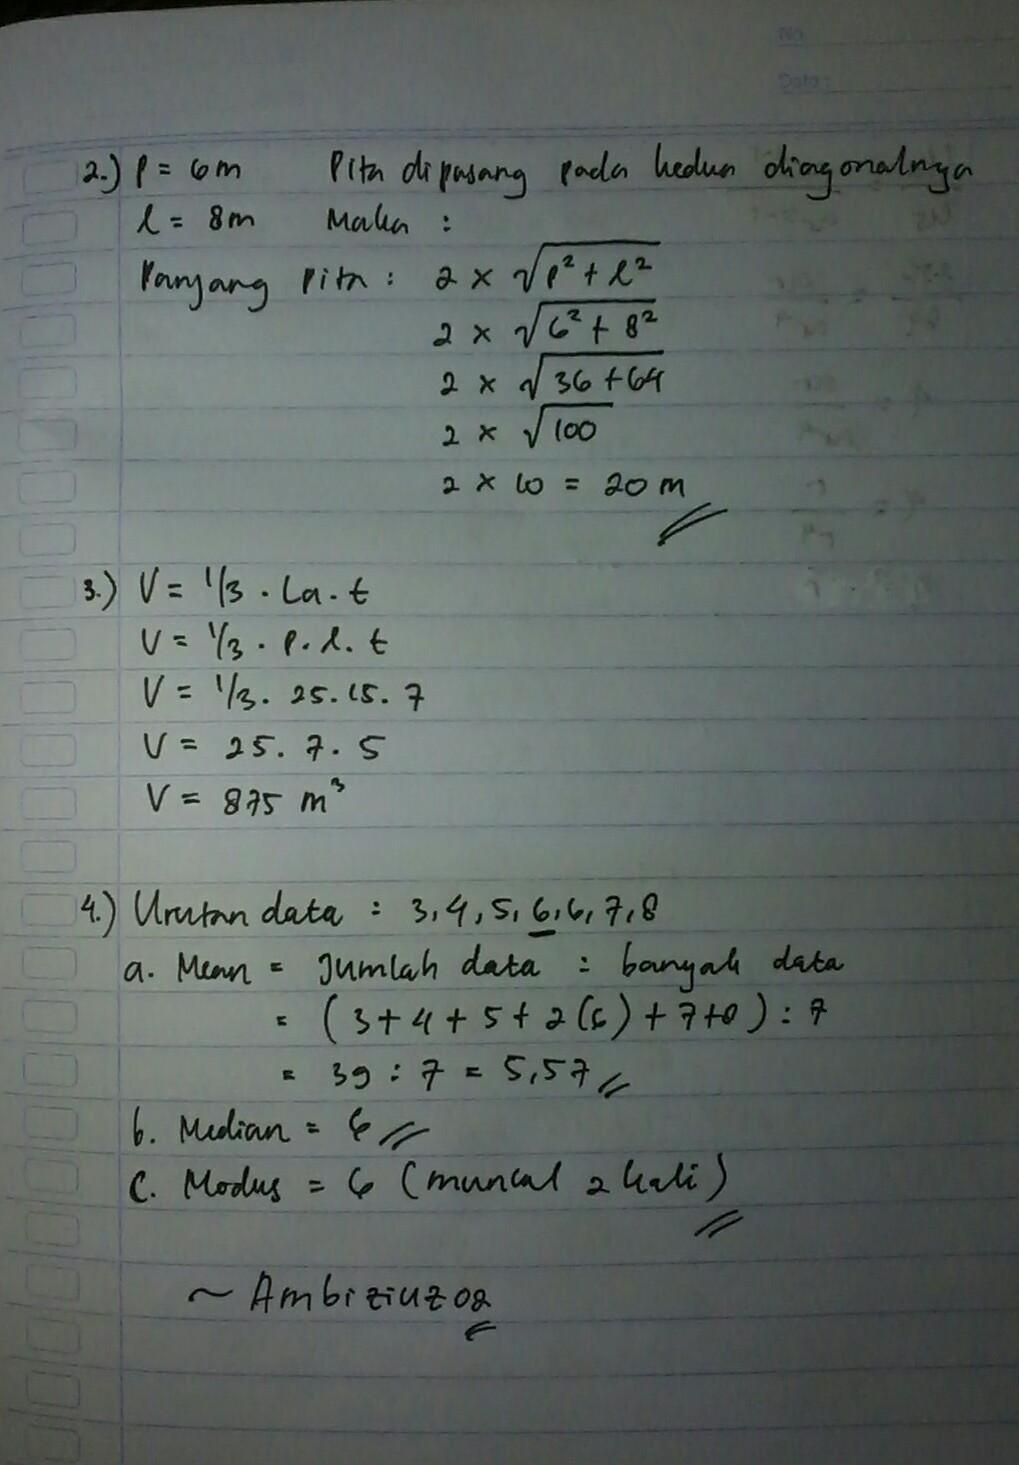 No
Date :
2.) p = 6m Pita dipasang pada kedua diagonalnya
l = 8m Maka :
Panjang Pita : 2 x √p² + l²
2 x √6² + 8²
2 x √36 + 64
2 x √100
2 x 10 = 20 m
3.) V = 1/3 . La . t
V = 1/3 . p . l . t
V = 1/3 . 25 . 15 . 7
V = 25 . 7 . 5
V = 875 m³
4.) Urutan data : 3, 4, 5, 6, 6, 7, 8
a. Mean = Jumlah data : banyak data
= ( 3 + 4 + 5 + 2(6) + 7 + 8 ) : 7
= 39 : 7 = 5,57
b. Median = 6
c. Modus = 6 (muncul 2 kali)
~ Ambiziuz02